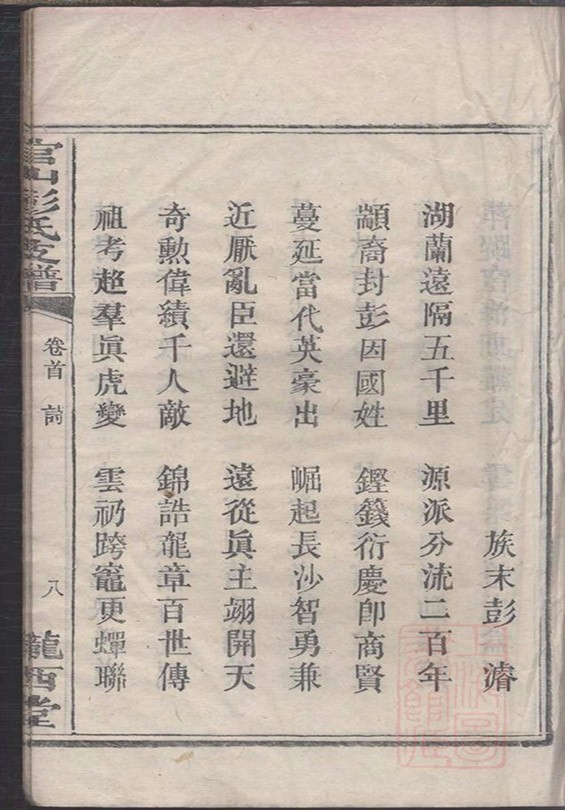 族末彭濬
湖蘭遠隔五千里　源派分流二百年
顓裔封彭因國姓　鏗籛衍慶即商賢
蔓延當代英豪出　崛起長沙智勇兼
近厭亂臣還避地　遠從眞主翊開天
奇勲偉績千人敵　錦誥龍章百世傳
祖考超羣眞虎變　雲礽跨竈更蟬聯
官山彭氏支譜
卷首　詩
八
隴西堂